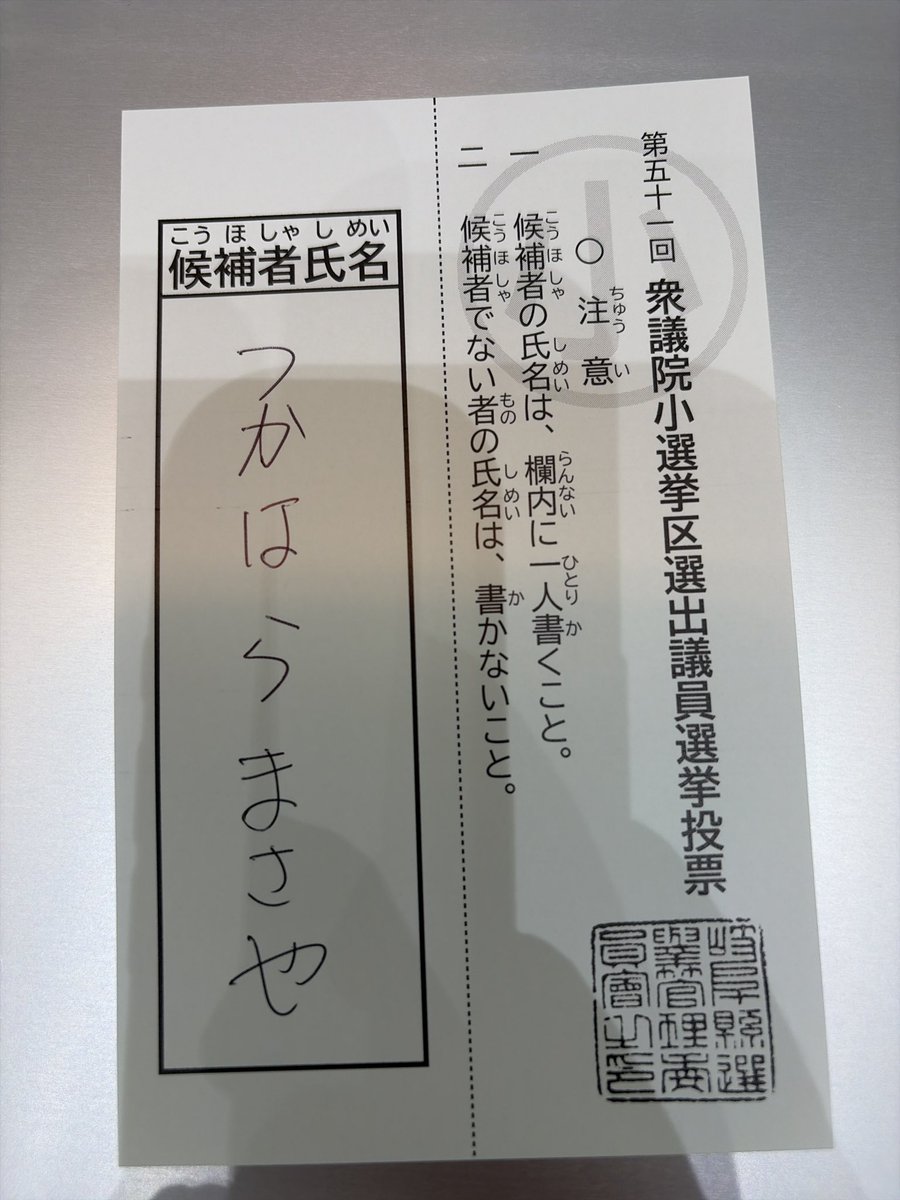 第五十一回 衆議院小選挙区選出議員選挙投票
小
○ 注意
ちゅうい
一 候補者の氏名は、欄内に一人書くこと。
こうほしゃ しめい らんない ひとりか
二 候補者でない者の氏名は、書かないこと。
こうほしゃ もの しめい か
こうほしゃしめい
候補者氏名
つかはらまさや
岐阜縣選
擧管理委
員會之印